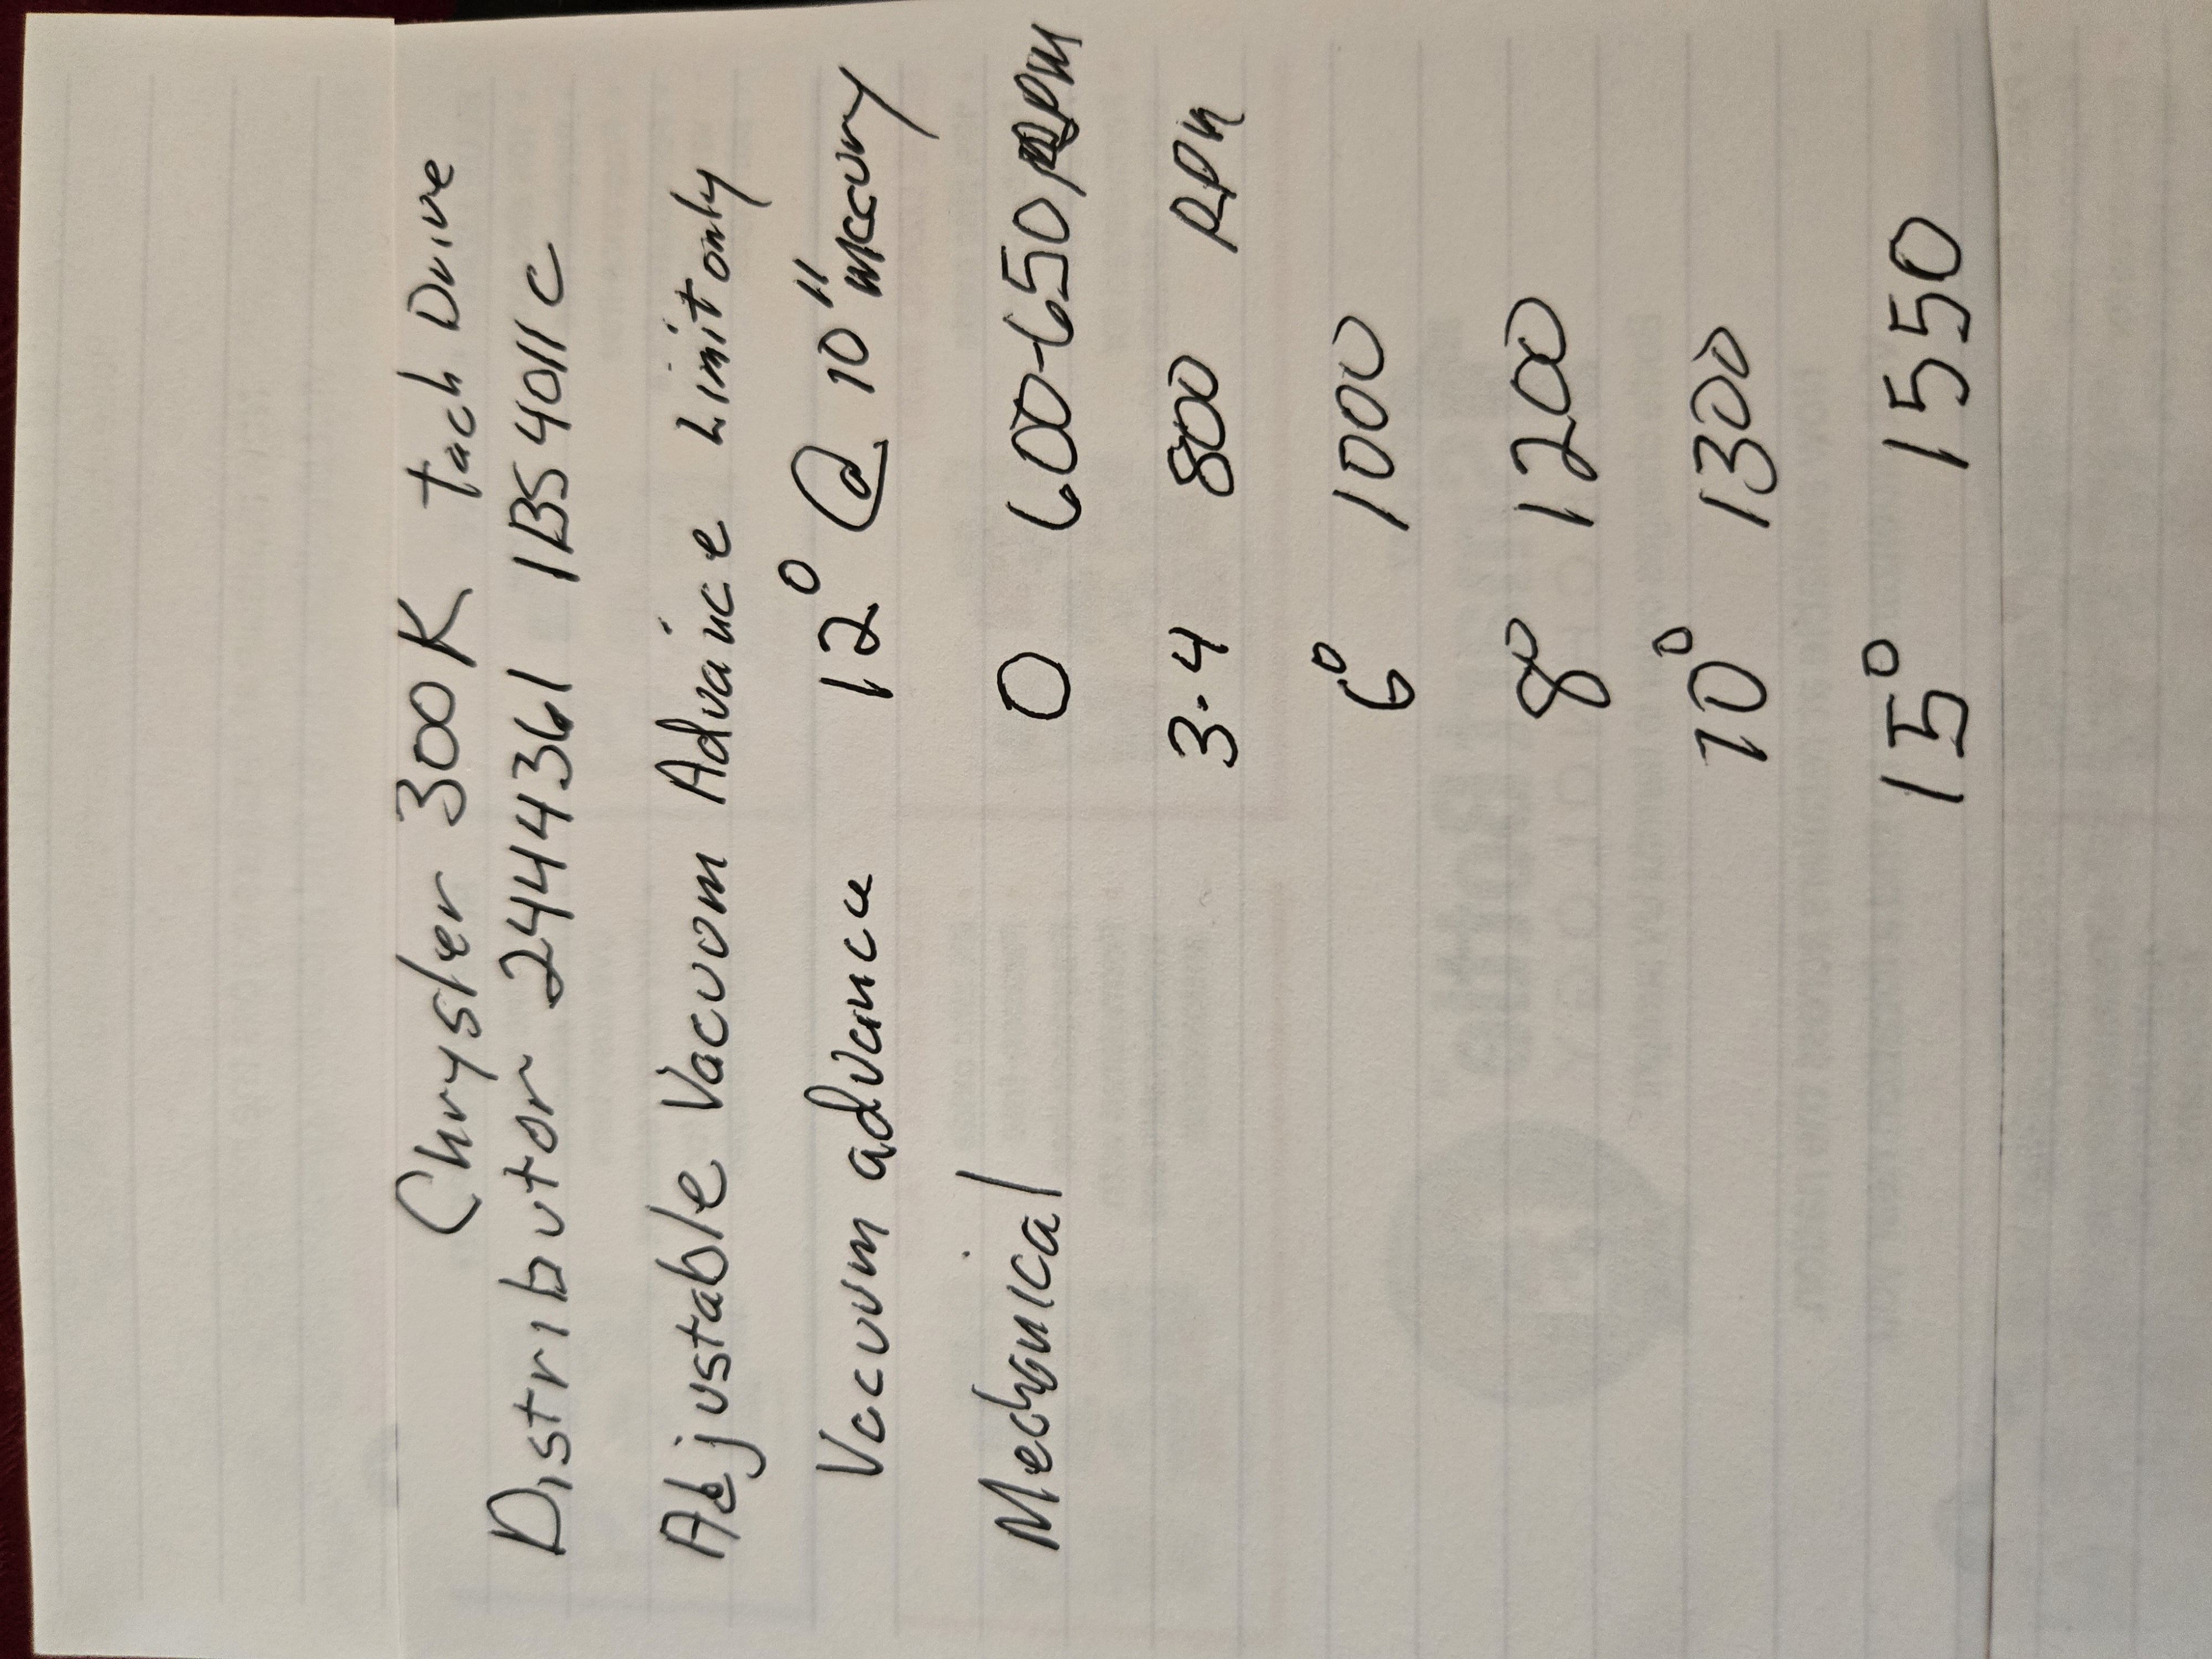 Chrysler 300K tach Drive
Distributor 2444361 IBS 4011C
Adjustable Vacuum Advance Limit only
Vacuum advance 12° @ 10" Mercury
Mechanical 0 600-650 RPM
3.4 800 RPM
6° 1000
8° 1200
10° 1300
15° 1550